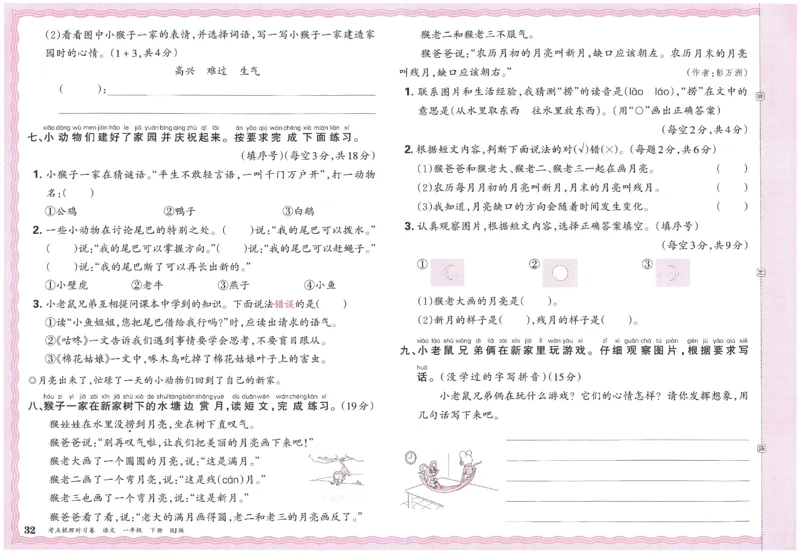 (2)看看图中小猴子一家的表情,并选择词语,写一写小猴子一家建造家
园时的心情。(1+3,共4分)
高兴 难过 生气
( ):
xiǎo dòng wù men jiàn hǎo le jiā yuán bìng qìng zhù qǐ lái àn yāo qiú wán chéng xià miàn liàn xí
七、小动物们建好了家园并庆祝起来。按要求完成下面练习。
(填序号)(每空3分,共18分)
1. 小猴子一家在猜谜语。“平生不敢轻言语,一叫千门万户开”,打一动物
名:( )
①公鸡 ②鸭子 ③白鹅
2. 一些小动物在讨论尾巴的特别之处。( )说:“我的尾巴可以拨水。”
( )说:“我的尾巴可以掌握方向。”( )说:“我的尾巴可以赶蝇子。”
( )说:“我的尾巴断了可以再长出新的。”
①小壁虎 ②老牛 ③燕子 ④小鱼
3. 小老鼠兄弟互相提问课本中学到的知识。下面说法错误的是( )
①读“小鱼姐姐,您把尾巴借给我行吗?”时,应读出请求的语气。
②《咕咚》一文告诉我们遇到事情要学会思考,不要盲目跟从。
③《棉花姑娘》一文中,啄木鸟吃掉了棉花姑娘叶子上的害虫。
◎月亮出来了,忙碌了一天的小动物们回到了自己的新家。
hóu zi yì jiā zài xīn jiā shù xià de shuǐ táng biān shǎng yuè dú duǎn wén wán chéng liàn xí
八、猴子一家在新家树下的水塘边赏月,读短文,完成练习。(19分)
猴娃娃在水里没捞到月亮,坐在树下直叹气。
猴爸爸说:“别再叹气啦,让我们把美丽的月亮画下来吧!”
猴老大画了一个圆圆的月亮,说:“这是满月。”
猴老二画了一个弯月亮,说:“这是残(cán)月。”
猴老三也画了一个弯月亮,说:“这是新月。”
猴爸爸看了看,说:“老大的满月画得圆,老二和老三的月亮画反了。”
32 考点梳理时习卷 语文 一年级 下册 RJ版
猴老二和猴老三不服气。
猴爸爸说:“农历月初的月亮叫新月,缺口应该朝左。农历月末的月亮
叫残月,缺口应该朝右。”
(作者:彭万洲)
1. 联系图片和生活经验,我猜测“捞”的读音是(lāo láo),“捞”在文中的
意思是(从水里取东西 往水里放东西)。(用“○”画出正确答案)
(每空2分,共4分)
2. 根据短文内容,判断下面说法的对(√)错(×)。(每题2分,共6分)
(1)猴爸爸和猴老大、猴老二、猴老三一起在画月亮。 ( )
(2)农历每月月初的月亮叫新月,月末的月亮叫残月。 ( )
(3)我知道,月亮缺口的方向会随着时间发生变化。 ( )
3. 认真观察图片,根据短文内容,选择正确答案填空。(填序号)
(每空3分,共9分)
① ② ③
(1)猴老大画的月亮是( )。
(2)新月的样子是( ),残月的样子是( )。
xiǎo lǎo shǔ xiōng dì liǎ zài xīn jiā lǐ wán yóu xì zǐ xì guān chá tú piàn gēn jù yāo qiú xiě
九、小老鼠兄弟俩在新家里玩游戏。仔细观察图片,根据要求写
huà
话。(没学过的字写拼音)(15分)
小老鼠兄弟俩在玩什么游戏?它们的心情怎样?请你发挥想象,用
几句话写下来吧。